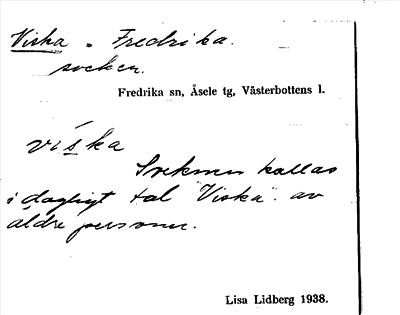 Viska = Fredrika.
socken.
Fredrika sn, Åsele tg, Västerbottens l.
viska
Socknen kallas
i dagligt tal "Viska" av
äldre personer.
Lisa Lidberg 1938.